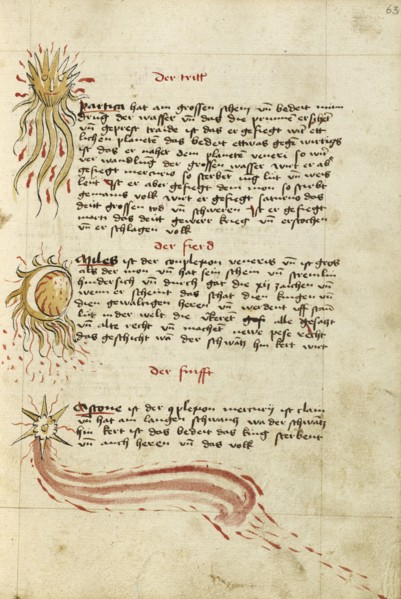 63
Der tritt
Partica hat am grossen schein vn̄ bedeit
drug der wasser vn̄ das die
vn̄ geprest traide ist das er gefiegt wirt ett
lichen planetē das bedeit ettwas gege
ist das er naher dem planetē veneri so wirt
ver wandlung der grossen wasser wirt er ab
gefiegt mercurio so sterbēt iūg lüt vn̄ wes
lüt ist er aber gefiegt dem mon so stirbt
gemains volk wirt er gefiegt saturno das
deit grossen tod vn̄ schweren ist er gefiegt
marti das deit gewere krieg vn̄ erstochen
vn̄ er schlagen volk
Der fierd
Miles ist der complexion veneris vn̄ ist gros
als der mon vn̄ hat sein schein vn̄
hindersich vn̄ durch gat die xij zaichen vn̄
wenn er scheint das schat dien kingen vn̄
dien gewaltigen heren vn̄ werdent uff stan
lüt in der welt die alle gesatzt
vn̄ alte recht vn̄ machet newe recht
das geschicht wa der schwätz hin kert wirt
der finfft
Astone ist der plexion mercurij ist clain
vn̄ hat am langen schwantz wa der schwätz
hin kert ist das bedeit das kinig sterbent
vn̄ auch heren vn̄ das volk